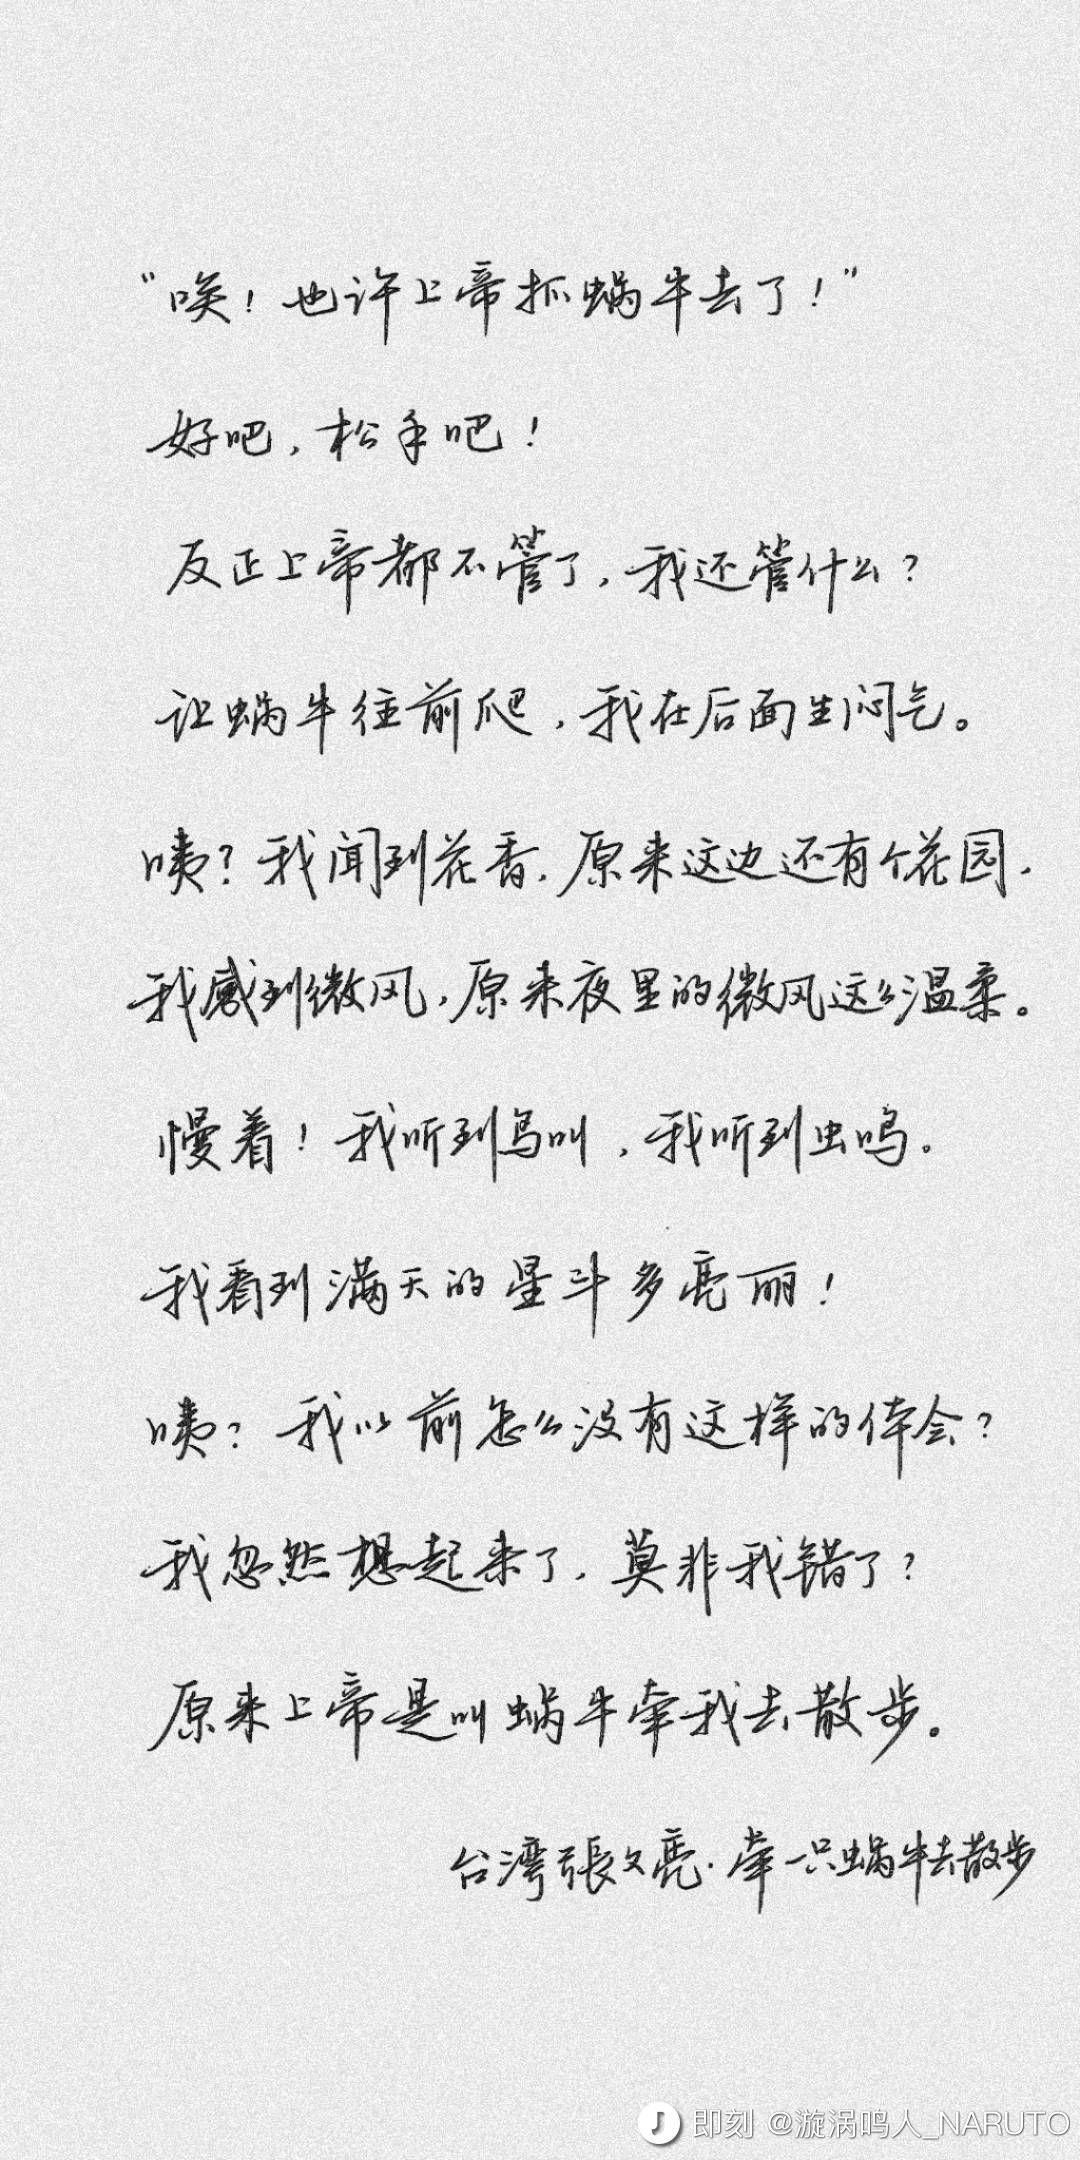 “唉！也许上帝抓蜗牛去了！”
好吧，松手吧！
反正上帝都不管了，我还管什么？
让蜗牛往前爬，我在后面生闷气。
咦？我闻到花香，原来这边还有个花园，
我感到微风，原来夜里的微风这么温柔。
慢着！我听到鸟叫，我听到虫鸣。
我看到满天的星斗多亮丽！
咦？我以前怎么没有这样的体会？
我忽然想起来了，莫非我错了？
原来上帝是叫蜗牛牵我去散步。
台湾張文亮·牵一只蜗牛去散步
即刻 @漩涡鸣人_NARUTO